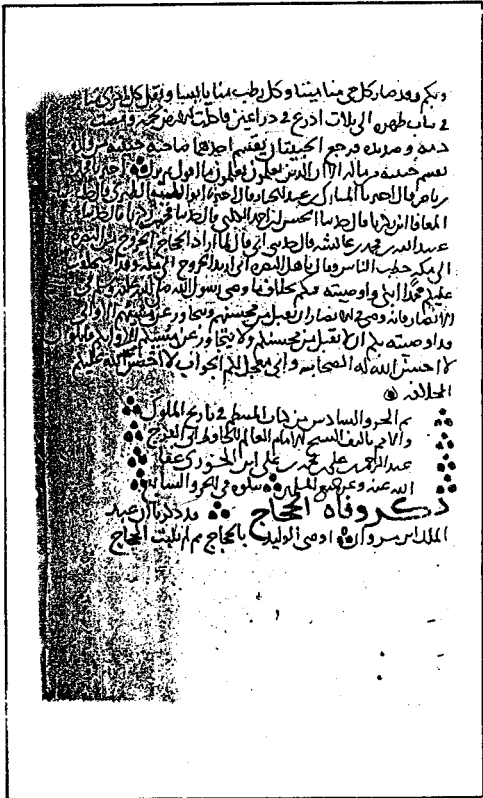 وقد صار كل حي منا ميتا وكل رطب منا يابسا ونقل كل امرئ منا
الى ثلاث اذرع في ذراعين فاكلت الارض لحمه ومصت
دمه وصديده ورجع الحبيبان يقتسم احدهما صاحبه حبيبه من ولده
يقسم حبيبه من ماله الا ان الذين يعلمون يعلمون ما اقول ثم نزل اخبرنا محمد
بن ناصر قال اخبرنا المبارك بن عبد الجبار قال اخبرنا ابو الطيب الطبري قال حدثنا
المعافا ابن زكريا قال حدثنا الحسن بن احمد الكلبي قال حدثنا محمد بن زكريا قال حدثنا
عبيد الله بن محمد بن عائشه قال حدثني ابي قال لما اراد الحجاج الخروج من البصره
الى مكه خطب الناس وقال يا اهل البصره اني اريد الخروج الى مكه وقد استخلفت
عليكم محمدا ابني واوصيته فيكم بخلاف ما وصى رسول الله صلى الله عليه وسلم في
الانصار فانه وصى في الانصار ان يقبل من محسنهم ويتجاوز عن مسيئهم الا واني
قد اوصيته فيكم ان لا يقبل من محسنكم ولا يتجاوز عن مسيئكم الا وانكم قايلون
لا احسن الله له الصحابه واني معجل لكم الجواب لا احسن الله عليكم
الخلافه
تم الجزو السادس من كتاب المنتظم في تاريخ الملوك
والامم تاليف الشيخ الامام العالم الحافظ ابي الفرج
عبد الرحمن بن علي بن محمد بن علي ابن الجوزي عفا
الله عنه وعن جميع المسلمين يتلوه في الجزو السابع
ذكر وفاه الحجاج وقد ذكرنا ان عبد
الملك ابن مروان اوصى الوليد بالحجاج ثم لم يلبث الحجاج